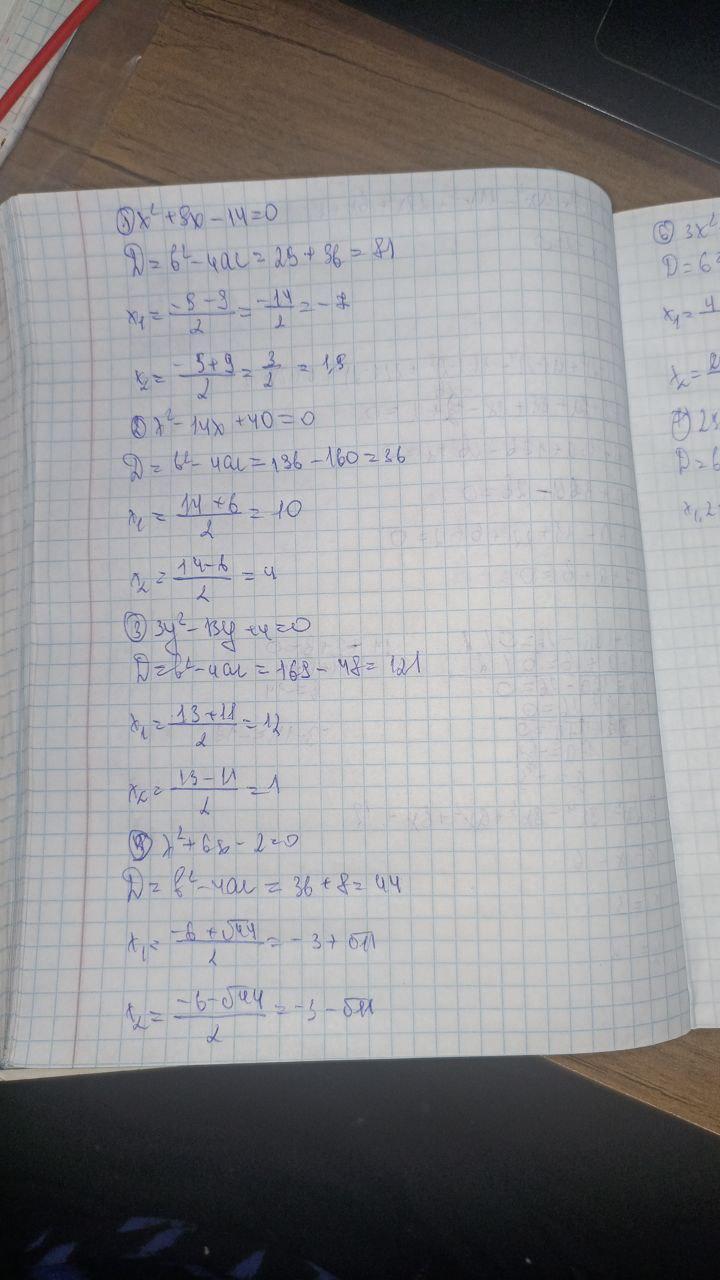 1) x² + 5x - 14 = 0
D = b² - 4ac = 25 + 56 = 81
x₁ = (-5 - 9)/2 = -14/2 = -7
x₂ = (-5 + 9)/2 = 3/2 = 1,5
2) x² - 14x + 40 = 0
D = b² - 4ac = 196 - 160 = 36
x₁ = (14 + 6)/2 = 10
x₂ = (14 - 6)/2 = 4
3) 3y² - 13y + 4 = 0
D = b² - 4ac = 169 - 48 = 121
x₁ = (13 + 11)/2 = 12
x₂ = (13 - 11)/2 = 1
x² + 6x - 2 = 0
D = b² - 4ac = 36 + 8 = 44
x₁ = (-6 + √44)/2 = -3 + √11
x₂ = (-6 - √44)/2 = -3 - √11
6) 3x²
D = 6²
x₁ =
x₂ =
D = 6
x₁,₂